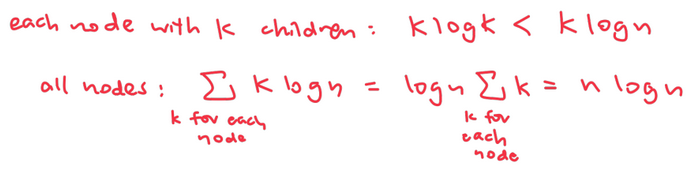 each node with k children : k log k < k log n
all nodes : ∑ k log n = log n ∑ k = n log n
k for each node
k for each node